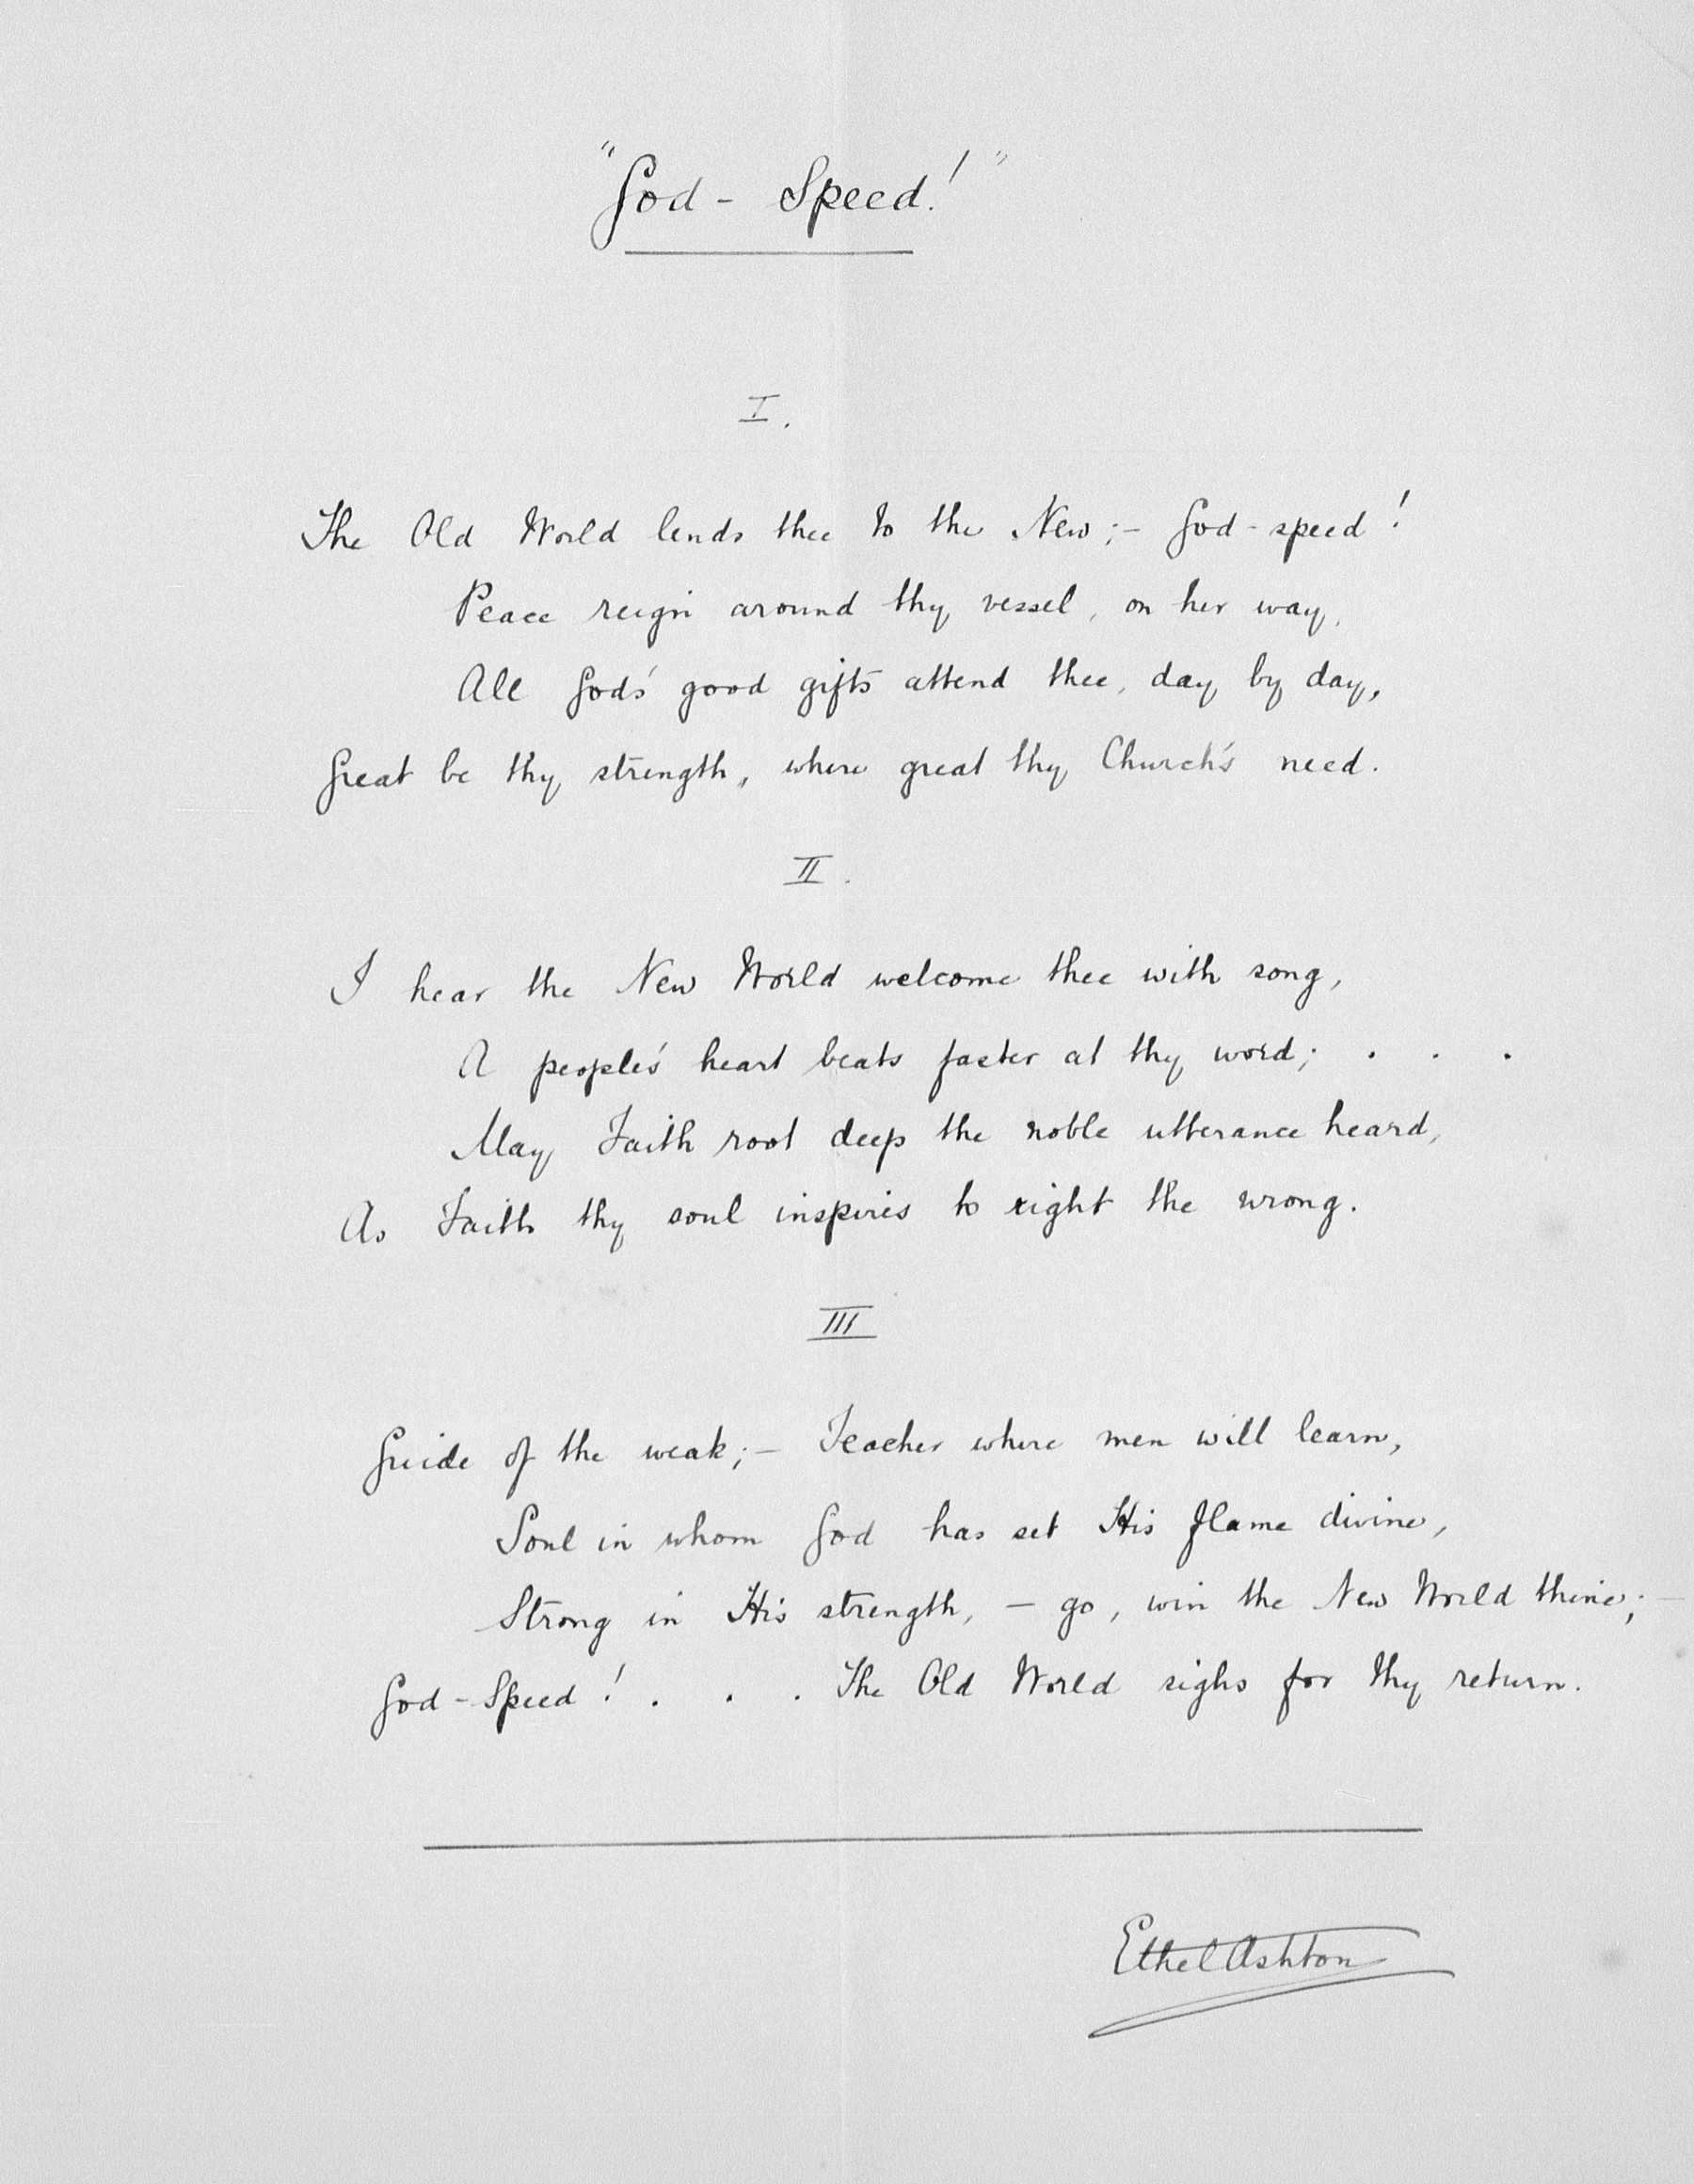 "God - Speed!"
I.
The Old World lends thee to the New; - God - speed!
Peace reign around thy vessel, on her way,
All God's good gifts attend thee, day by day,
Great be thy strength, where great thy Church's need.
II.
I hear the New World welcome thee with song,
A people's heart beats faster at thy word; . . .
May Faith root deep the noble utterance heard,
As Faith thy soul inspires to right the wrong.
III
Guide of the weak; - Teacher where men will learn,
Soul in whom God has set His flame divine,
Strong in His strength, - go, win the New World thine; -
God - Speed! . . . The Old World sighs for thy return.
Ethel Ashton